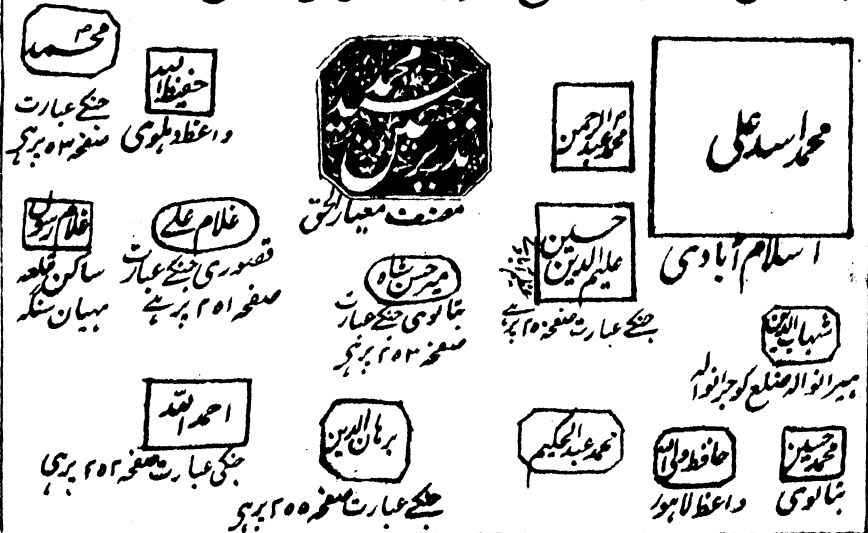 محمد اسد علی
اسلام آبادی
محمد عبد الرحمن
محمد
سید
نذیر حسین
مصنف معیار الحق
حفیظ اللہ
واعظ دہلوی
محمد
جنکے عبارت
صفحہ ۵۳ پر ہی
حسین
علیم الدین
جنکے عبارت صفحہ ۲۵ پر ہے
میر حسن شاہ
بٹالوی جنکے عبارت
صفحہ ۲۵۳ پر ہی
غلام علے
قصوری جنکے عبارت
صفحہ ۲۵۱ پر ہے
غلام رسول
ساکن قلعہ
میہان سنگہ
شہاب الدین
ہیرانوالہ ضلع کوجرانوالہ
محمد حسین
بٹالوی
حافظ ولی اللہ
واعظ لاہور
محمد عبد الحکیم
برہان الدین
جنکے عبارت صفحہ ۲۵۵ پر ہی
احمد اللہ
جنکی عبارت صفحہ ۲۵۲ پر ہی